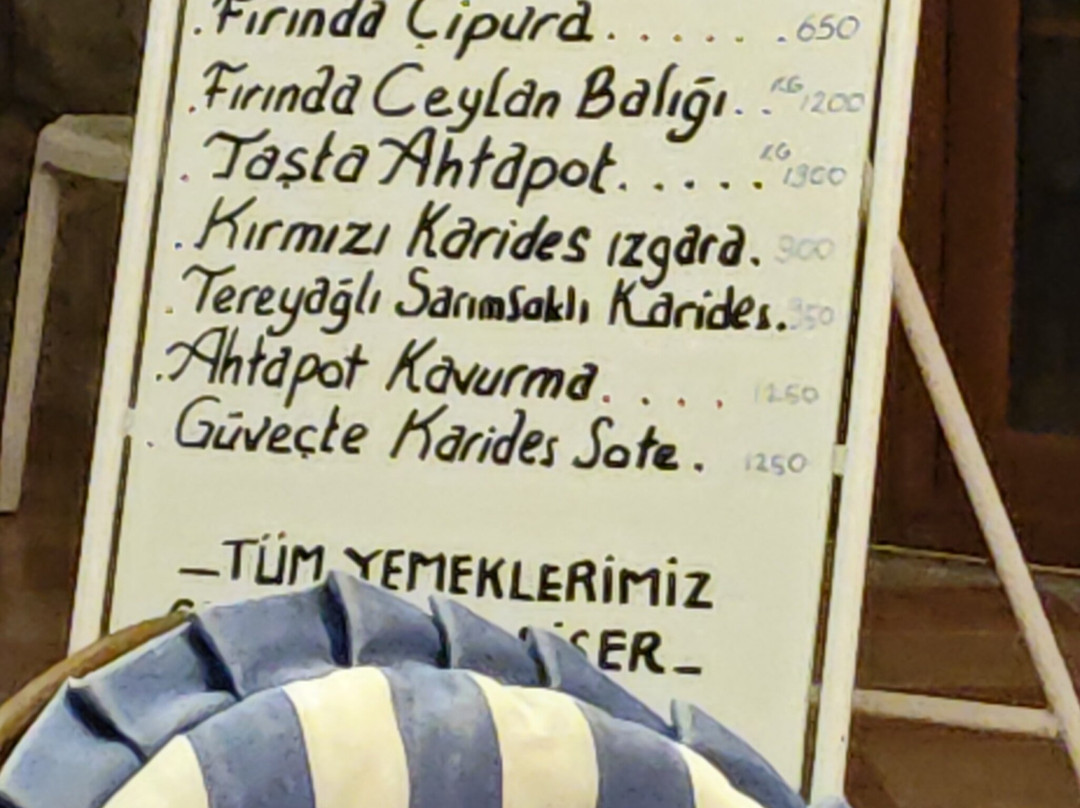 . Fırında Çipura. . . . . . . 650
. Fırında Ceylan Balığı. . KG 1200
. Taşta Ahtapot. . . . . . KG
. Kırmızı Karides ızgara. 900
. Tereyağlı Sarımsaklı Karides.
. Ahtapot Kavurma. . . . . 1250
. Güveçte Karides Sote. 1250
_TÜM YEMEKLERİMİZ